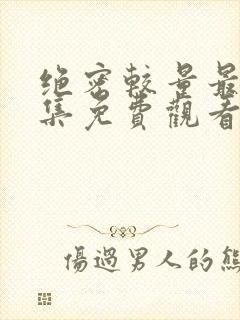 绝密较量最
集免費觀看
傷過男人的熊